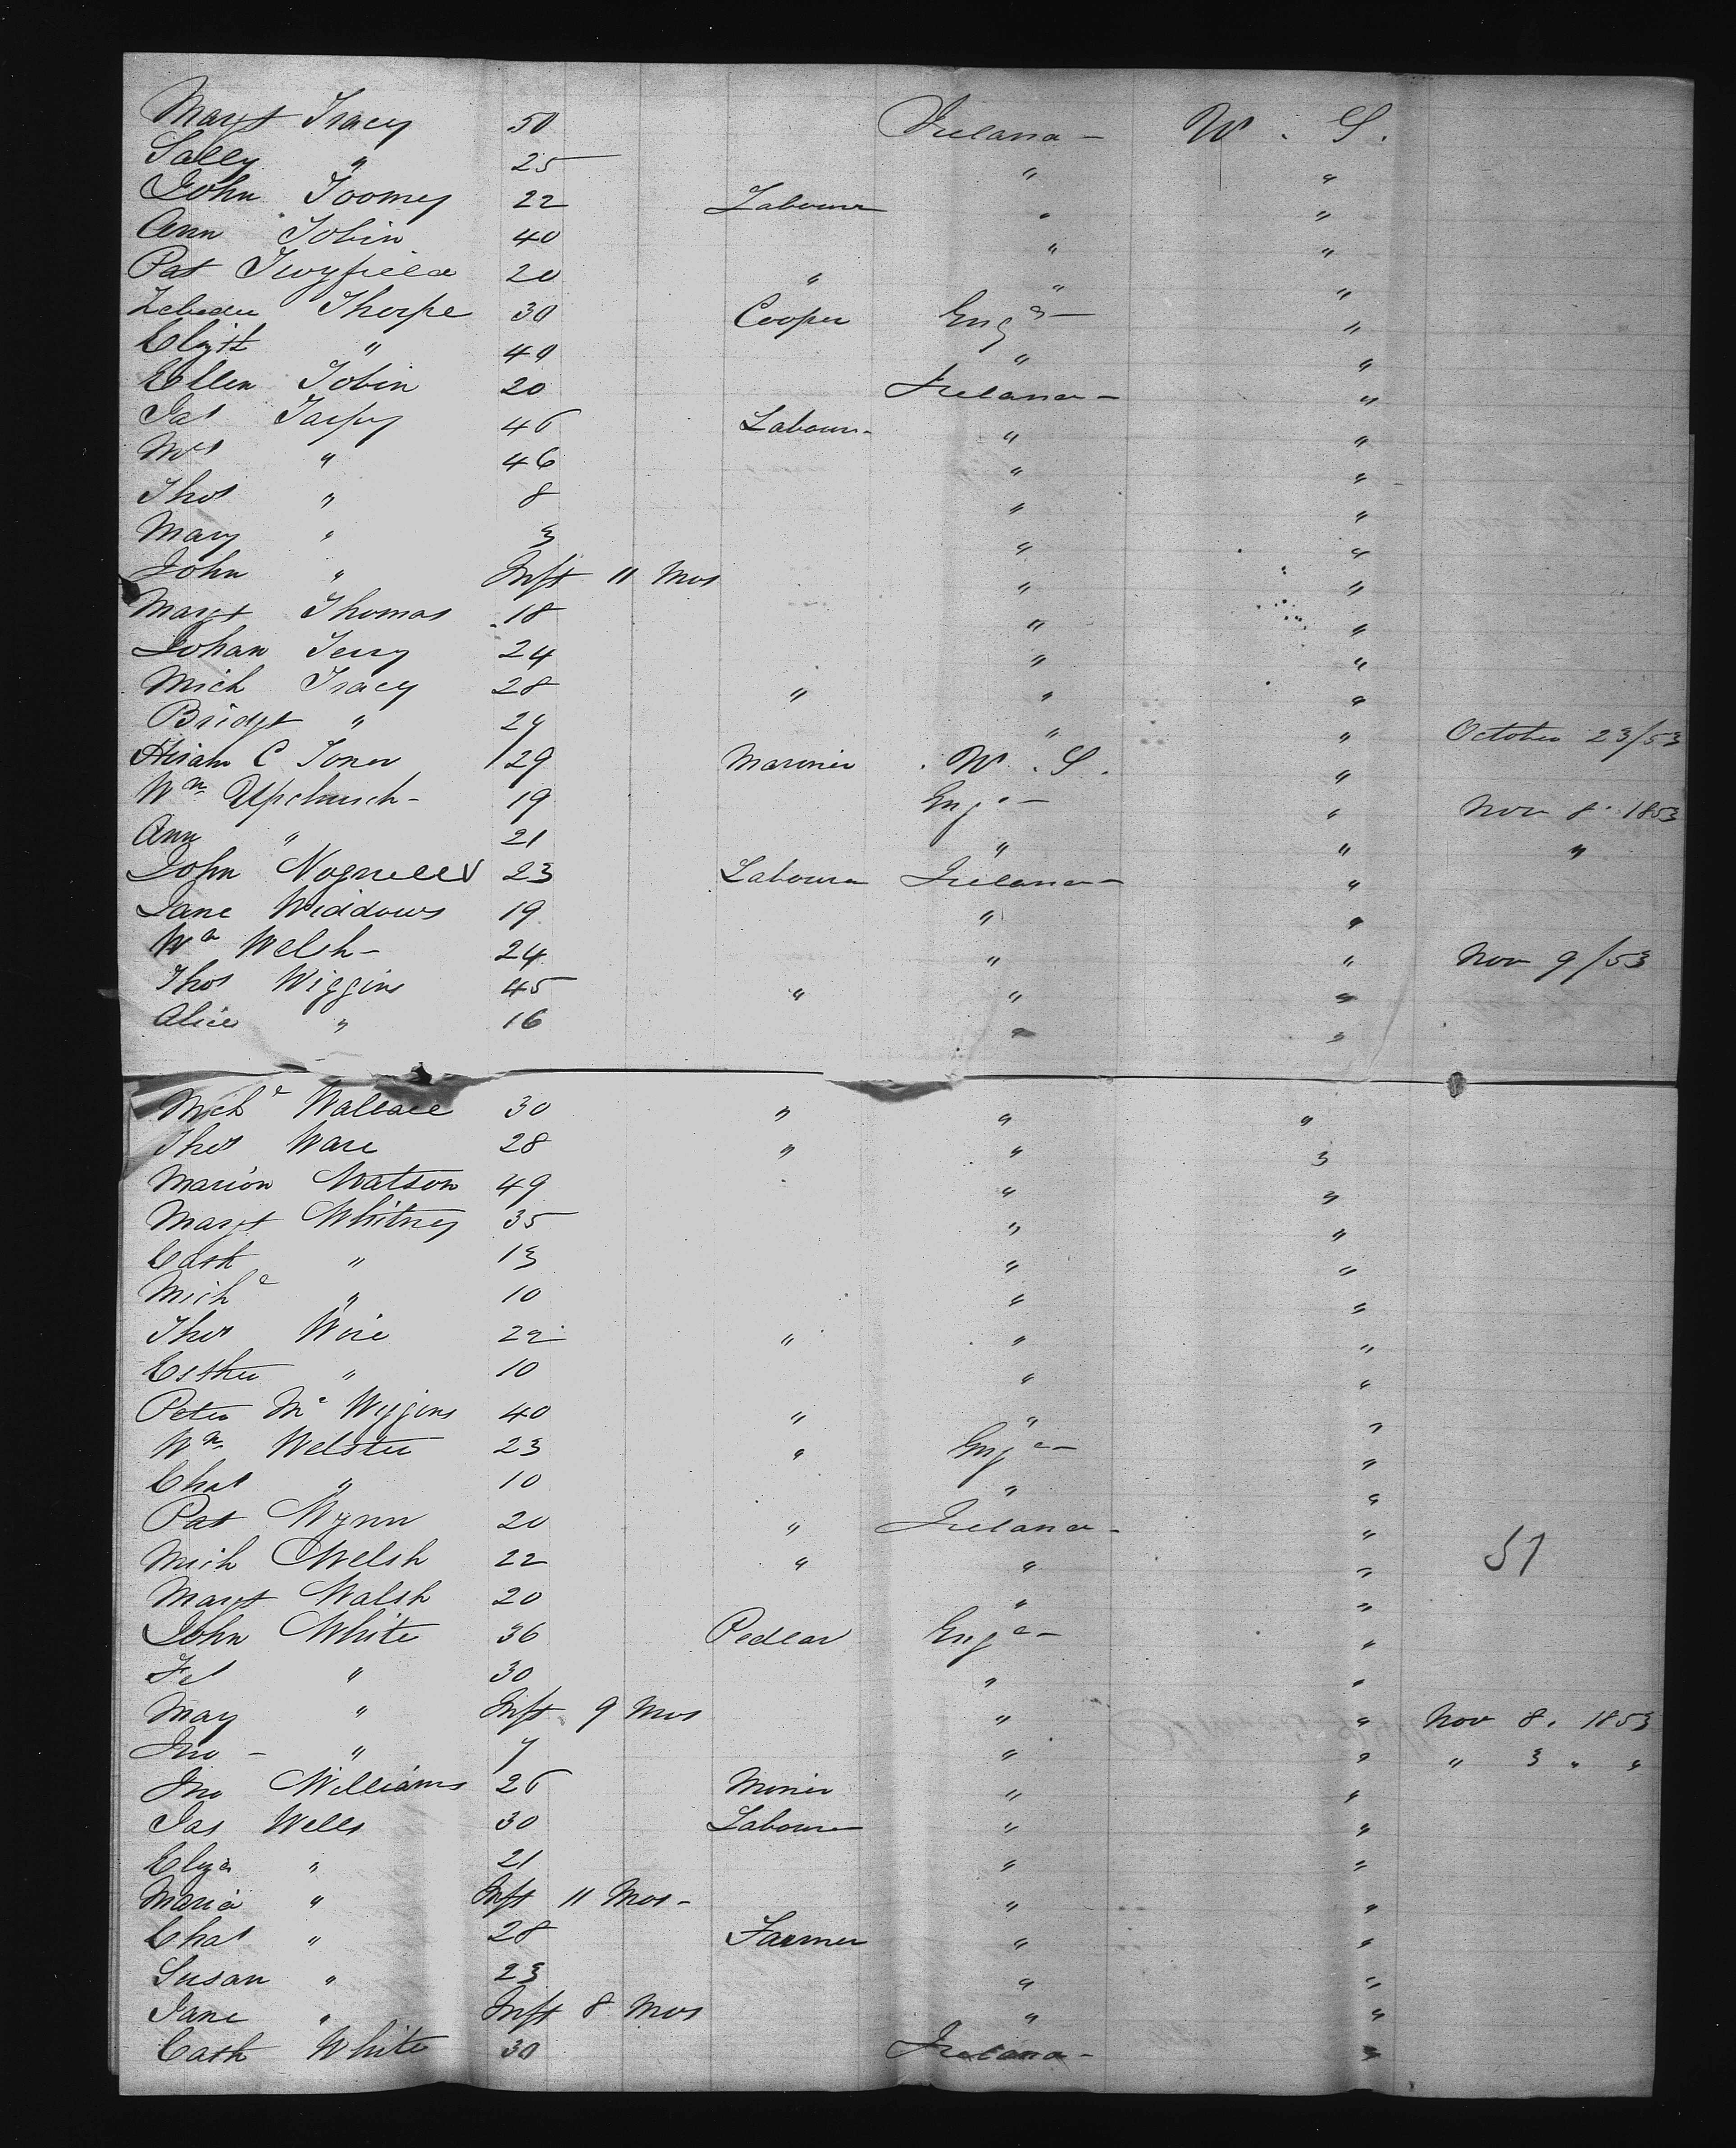 Margt Tracy 50 Ireland - U. S.
Sally " 25 " "
John Toomey 22 Labourer " "
Ann Tobin 40 " "
Pat Twyfield 20 " " "
Zebedee Thorpe 30 Cooper Engd - "
Elizth " 40 " "
Ellen Tobin 20 Ireland - "
Jas Tarpy 46 Labourer " "
Mrs " 46 " "
Thos " 8 " "
Mary " 3 " "
John " Inft 11 Mos " "
Margt Thomas 18 " "
Johan Terry 24 " "
Mich Tracy 28 " " "
Bridgt " 24 " " October 23/53
Hiram C Toner 29 Mariner U. S. "
Wm Upchurch - 19 Engd - " Nov 8. 1853
Ann " 21 " " "
John 23 Labourer Ireland - "
Jane Widdows 19 " "
Wm Welsh - 24 " " Nov 9/53
Thos Wiggins 45 " " "
Alice " 16 " "
Michl Wallace 30 " " "
Thos Ware 28 " " "
Marion Watson 49 " "
Margt Whitney 35 " "
Cath " 13 " "
Michl " 10 " "
Thos Wire 22 " " "
Esther " 10 " "
Peter Mc Wiggins 40 " " "
Wm Webster 23 " Engd - "
Chas " 10 " "
Pat Wynn 20 " Ireland - "
Mich Welsh 22 " " "
Margt Walsh 20 " "
John White 36 Pedlar Engd - "
" 30 " "
May " Inft 9 Mos " " Nov 8. 1853
Jno - " 7 " " " 3 " "
Jno Williams 26 Miner " "
Jas Wells 30 Labourer " "
Eliza " 21 " "
Maria " Inft 11 Mos - " "
Chas " 28 Farmer " "
Susan " 23 " "
Jane " Inft 8 Mos " "
Cath White 30 Ireland - "
51